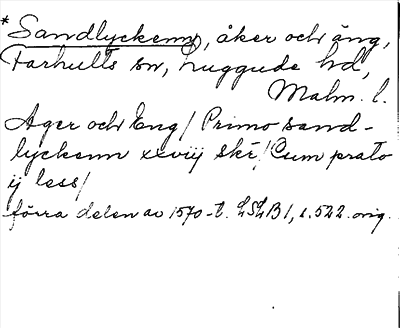 * Sandlyckenn, åker och äng,
Farhults sn, Luggude hd,
Malm. l.
Ager och Eng / Primo sand-
lyckenn xxviij skr / Cum prato
ij less /
förra delen av 1570-t. LSLB 1, s. 522. orig.